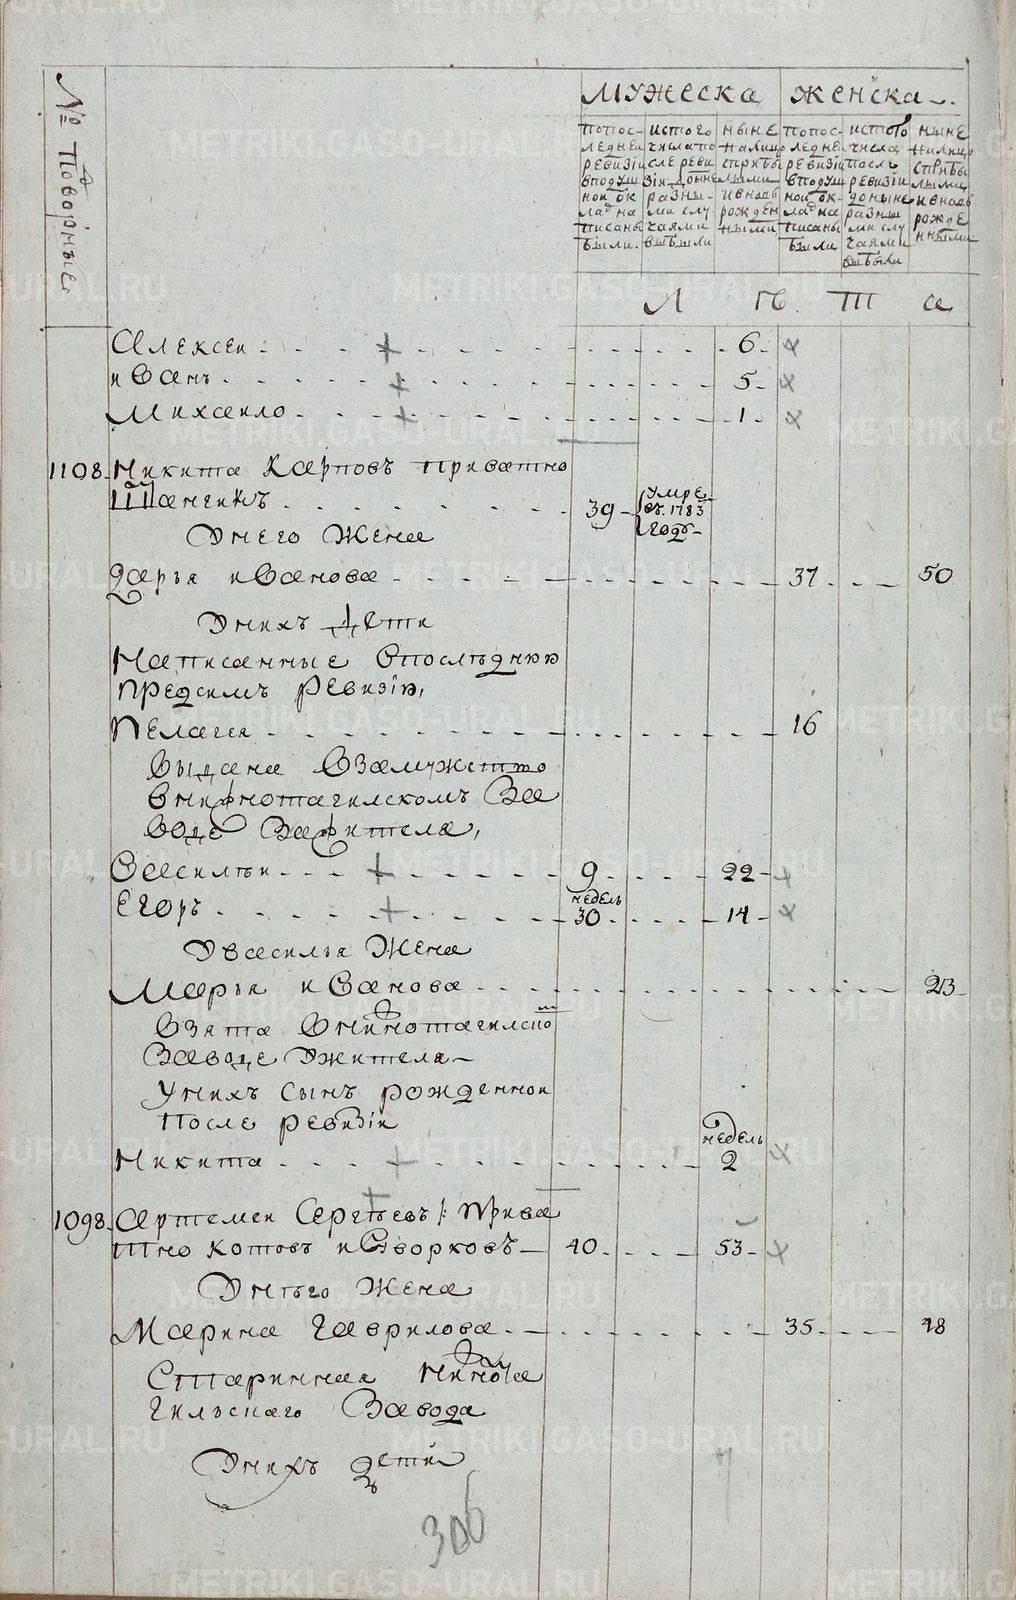 № Подворные
МУЖЕСКА ЖЕНСКА
попос-
ледней
ревизіи
вподуш
ной ок
лад на
писаны
были.
истого
числа по
сле реви
зіи доныне
разны-
ми слу
чаями
выбыли
ныне
налицо
сприбы
лыми
ивновь
рожден
ными
попос-
ледней
ревизіи
вподуш
ной ок-
лад на
писаны
были
истого
числа
послъ
ревизіи
доныне
разны
ми слу
чаями
выбыли
ныне
налицо
сприбы
лыми
ивновь
рожде
нными
Л ѣ т а
Алексеи 6
иванъ 5
Михаило 1
1108 Никита Карповъ приватно
Шангинъ 39 умре въ 1783 годъ
Унего Жена
дарья иванова 37 50
Унихъ Дети
Написанные впослѣднюю
предсимъ ревизію,
Пелагея 16
выдана взамужство
внижнотагилскомъ За
воде Зажителя,
Василеи 9 22
Егоръ недель 30 14
Увасилья Жена
Марья иванова 23
взята внижнотагилско
Заводе Ужителя
Унихъ Сынъ рожденнои
После ревизіи
Никита недель 2
1098 Артемеи Сергѣевъ /: Прива
тно котовъ иСворковъ 40 53
Унѣго Жена
Марина Гаврилова 35 48
Старинная нижнота
гильскаго Завода
Унихъ дети
306
METRIKI.GASO-URAL.RU